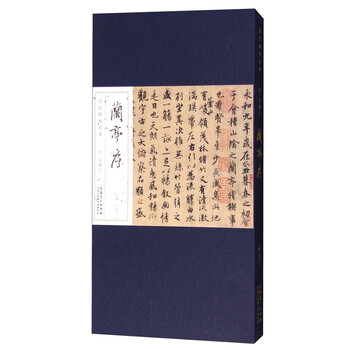 蘭亭序
永和九年歲在癸丑暮春之初會
于會稽山陰之蘭亭脩稧事
也群賢畢至少長咸集此地
有崇山峻領茂林脩竹又有清流激
湍暎帶左右引以為流觴曲水
列坐其次雖無絲竹管弦之
盛一觴一詠亦足以暢敘幽情
是日也天朗氣清惠風和暢仰
觀宇宙之大俯察品類之
蘭亭序